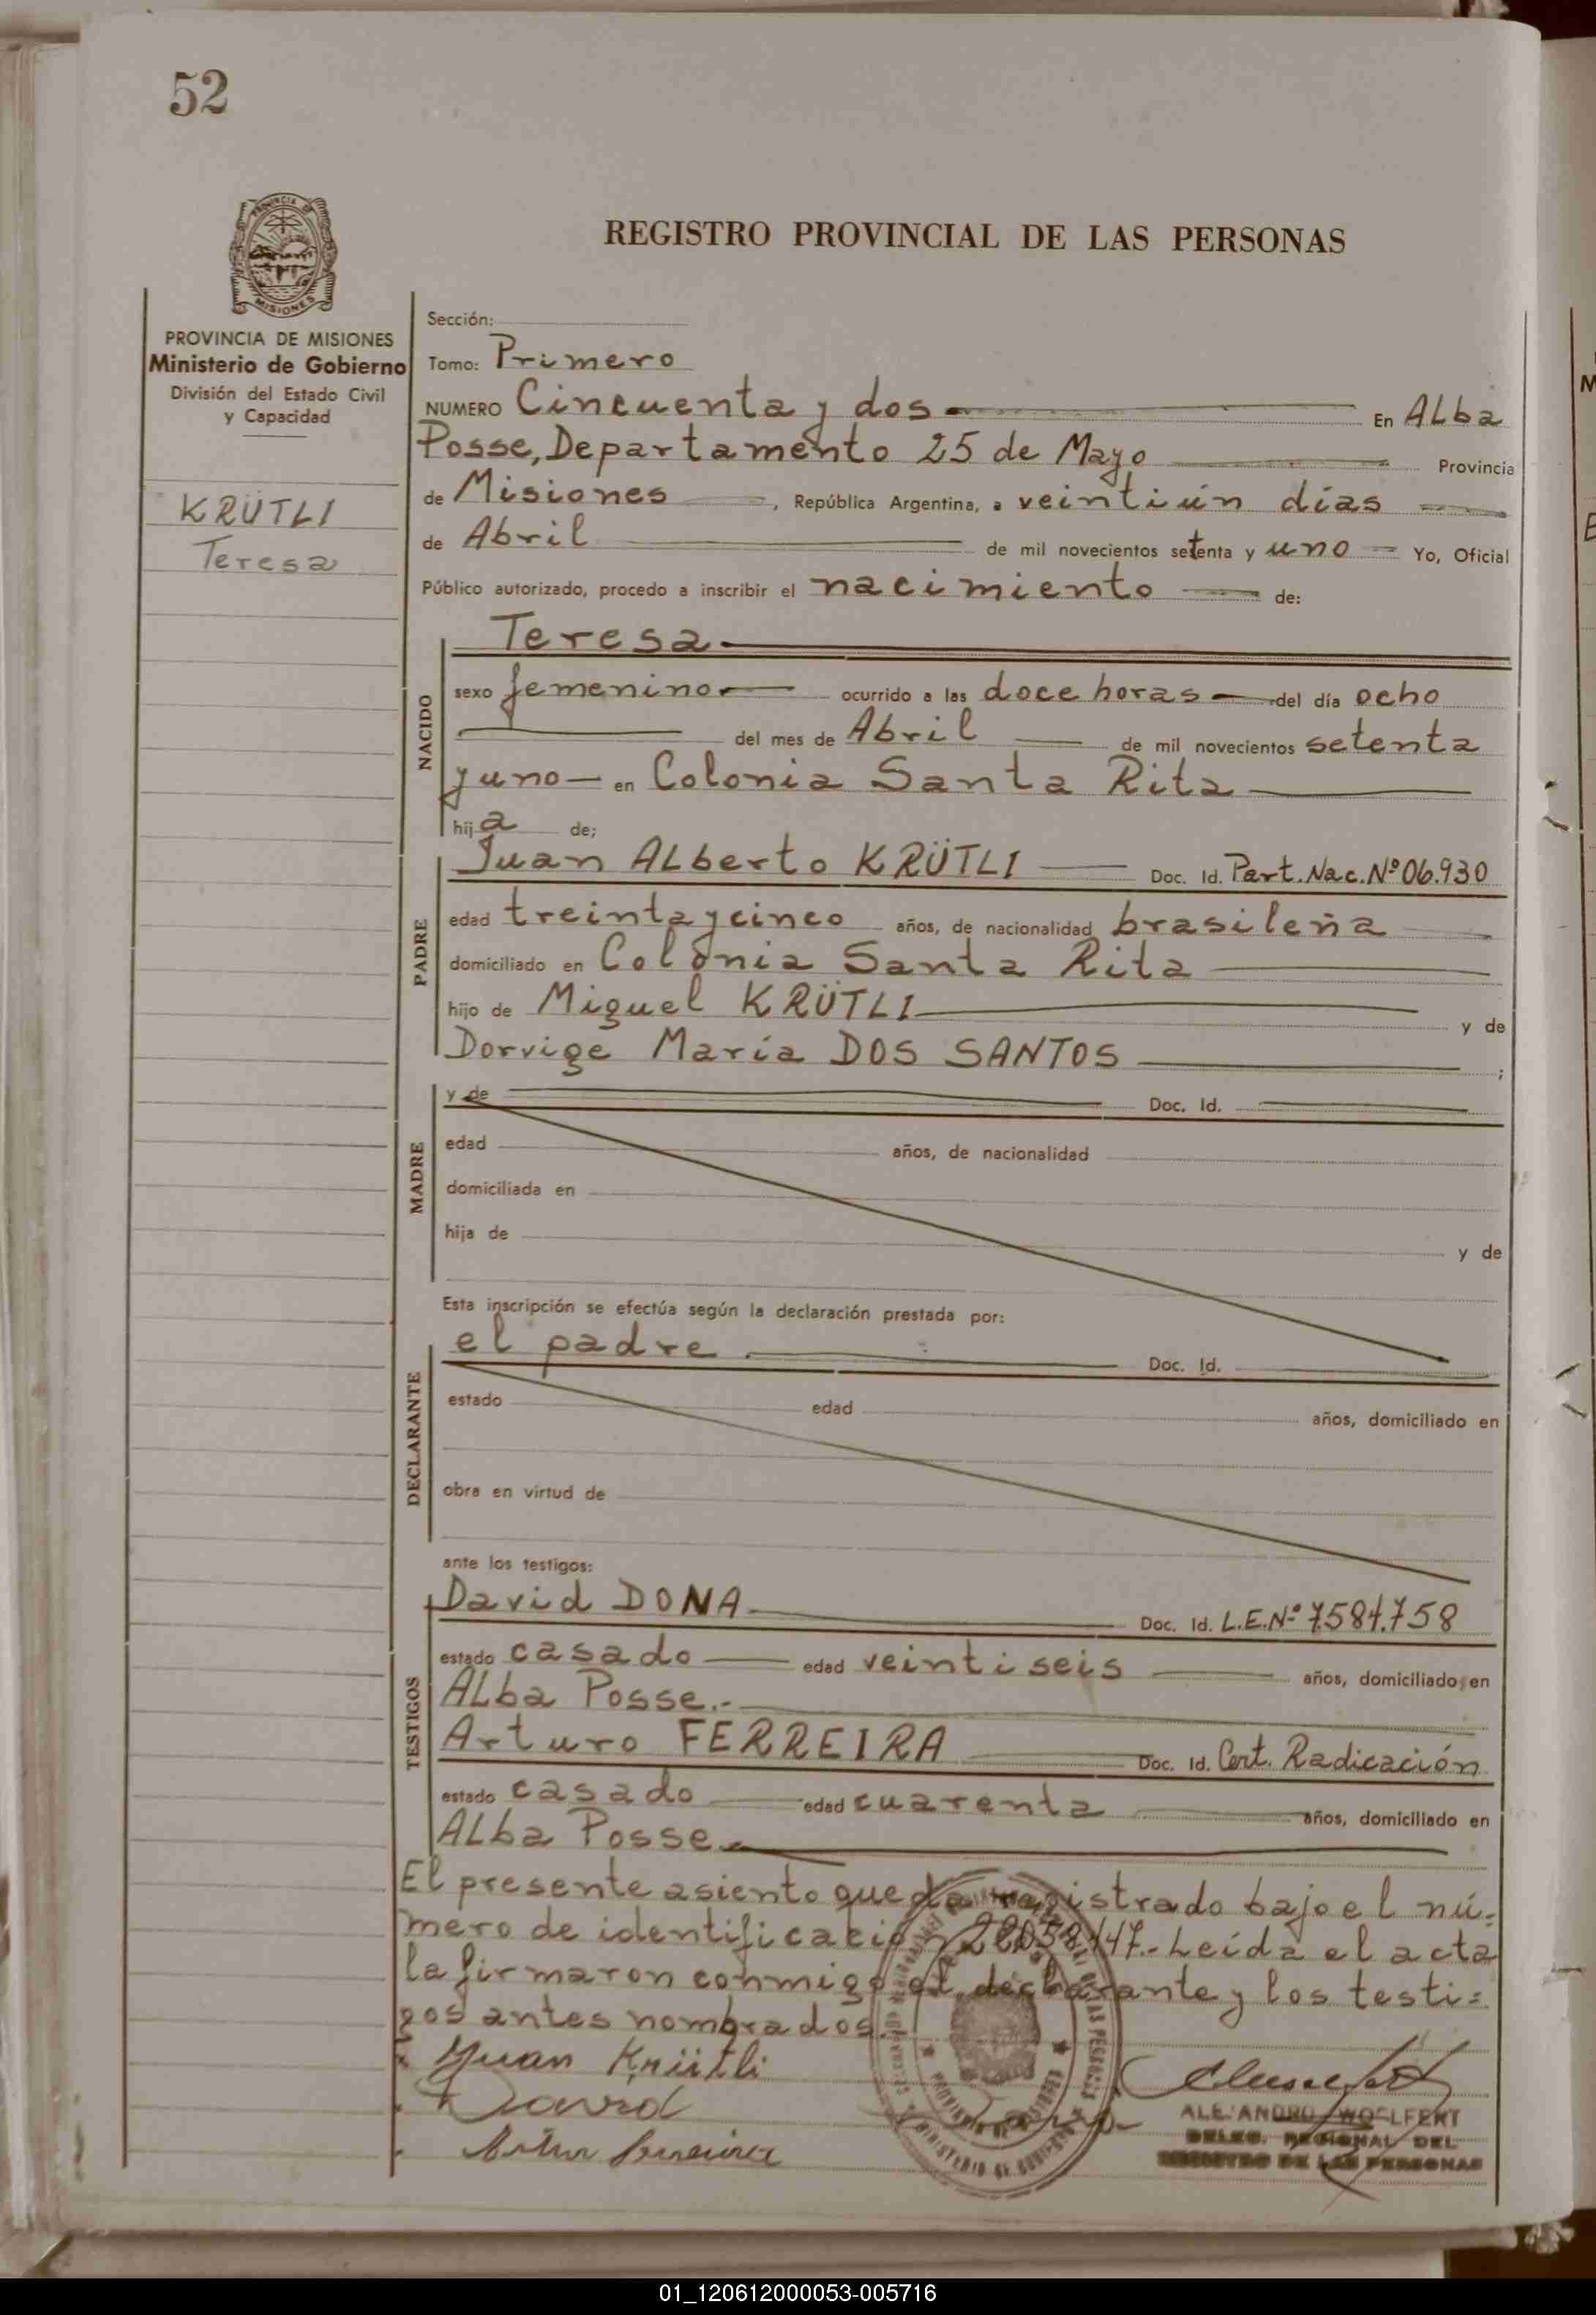 52
REGISTRO PROVINCIAL DE LAS PERSONAS
PROVINCIA DE
MISIONES
PROVINCIA DE MISIONES
Ministerio de Gobierno
División del Estado Civil
y Capacidad
KRÜTLI
Teresa
Sección:
Tomo: Primero
NUMERO Cincuenta y dos En ALba
Posse, Departamento 25 de Mayo Provincia
de Misiones, República Argentina, a veintiún días
de Abril de mil novecientos setenta y uno Yo, Oficial
Público autorizado, procedo a inscribir el nacimiento de:
NACIDO
Teresa
sexo femenino ocurrido a las doce horas del día ocho
del mes de Abril de mil novecientos setenta
y uno en Colonia Santa Rita
hija de;
PADRE
Juan ALberto KRÜTLI Doc. Id. Part. Nac. Nº 06.930
edad treinta y cinco años, de nacionalidad brasileña
domiciliado en Colonia Santa Rita
hijo de Miguel KRÜTLI y de
Dorvige María DOS SANTOS ;
MADRE
y de Doc. Id.
edad años, de nacionalidad
domiciliada en
hija de y de
Esta inscripción se efectúa según la declaración prestada por:
DECLARANTE
el padre Doc. Id.
estado edad años, domiciliado en
obra en virtud de
ante los testigos:
TESTIGOS
David DONA Doc. Id. L.E. Nº 7.584.758
estado casado edad veintiseis años, domiciliado en
ALba Posse.-
Arturo FERREIRA Doc. Id. Cert. Radicación
estado casado edad cuarenta años, domiciliado en
ALba Posse
El presente asiento queda registrado bajo el nú-
mero de identificación 22058147.- Leída el acta
la firmaron conmigo el declarante y los testi=
gos antes nombrados.
Juan Krüttli
David
Artur Ferreira
ALEJANDRO WOELFERT
DELEG. REGIONAL DEL
REGISTRO DE LAS PERSONAS
PROVINCIA DE MISIONES
MINISTERIO DE GOBIERNO
01_120612000053-005716